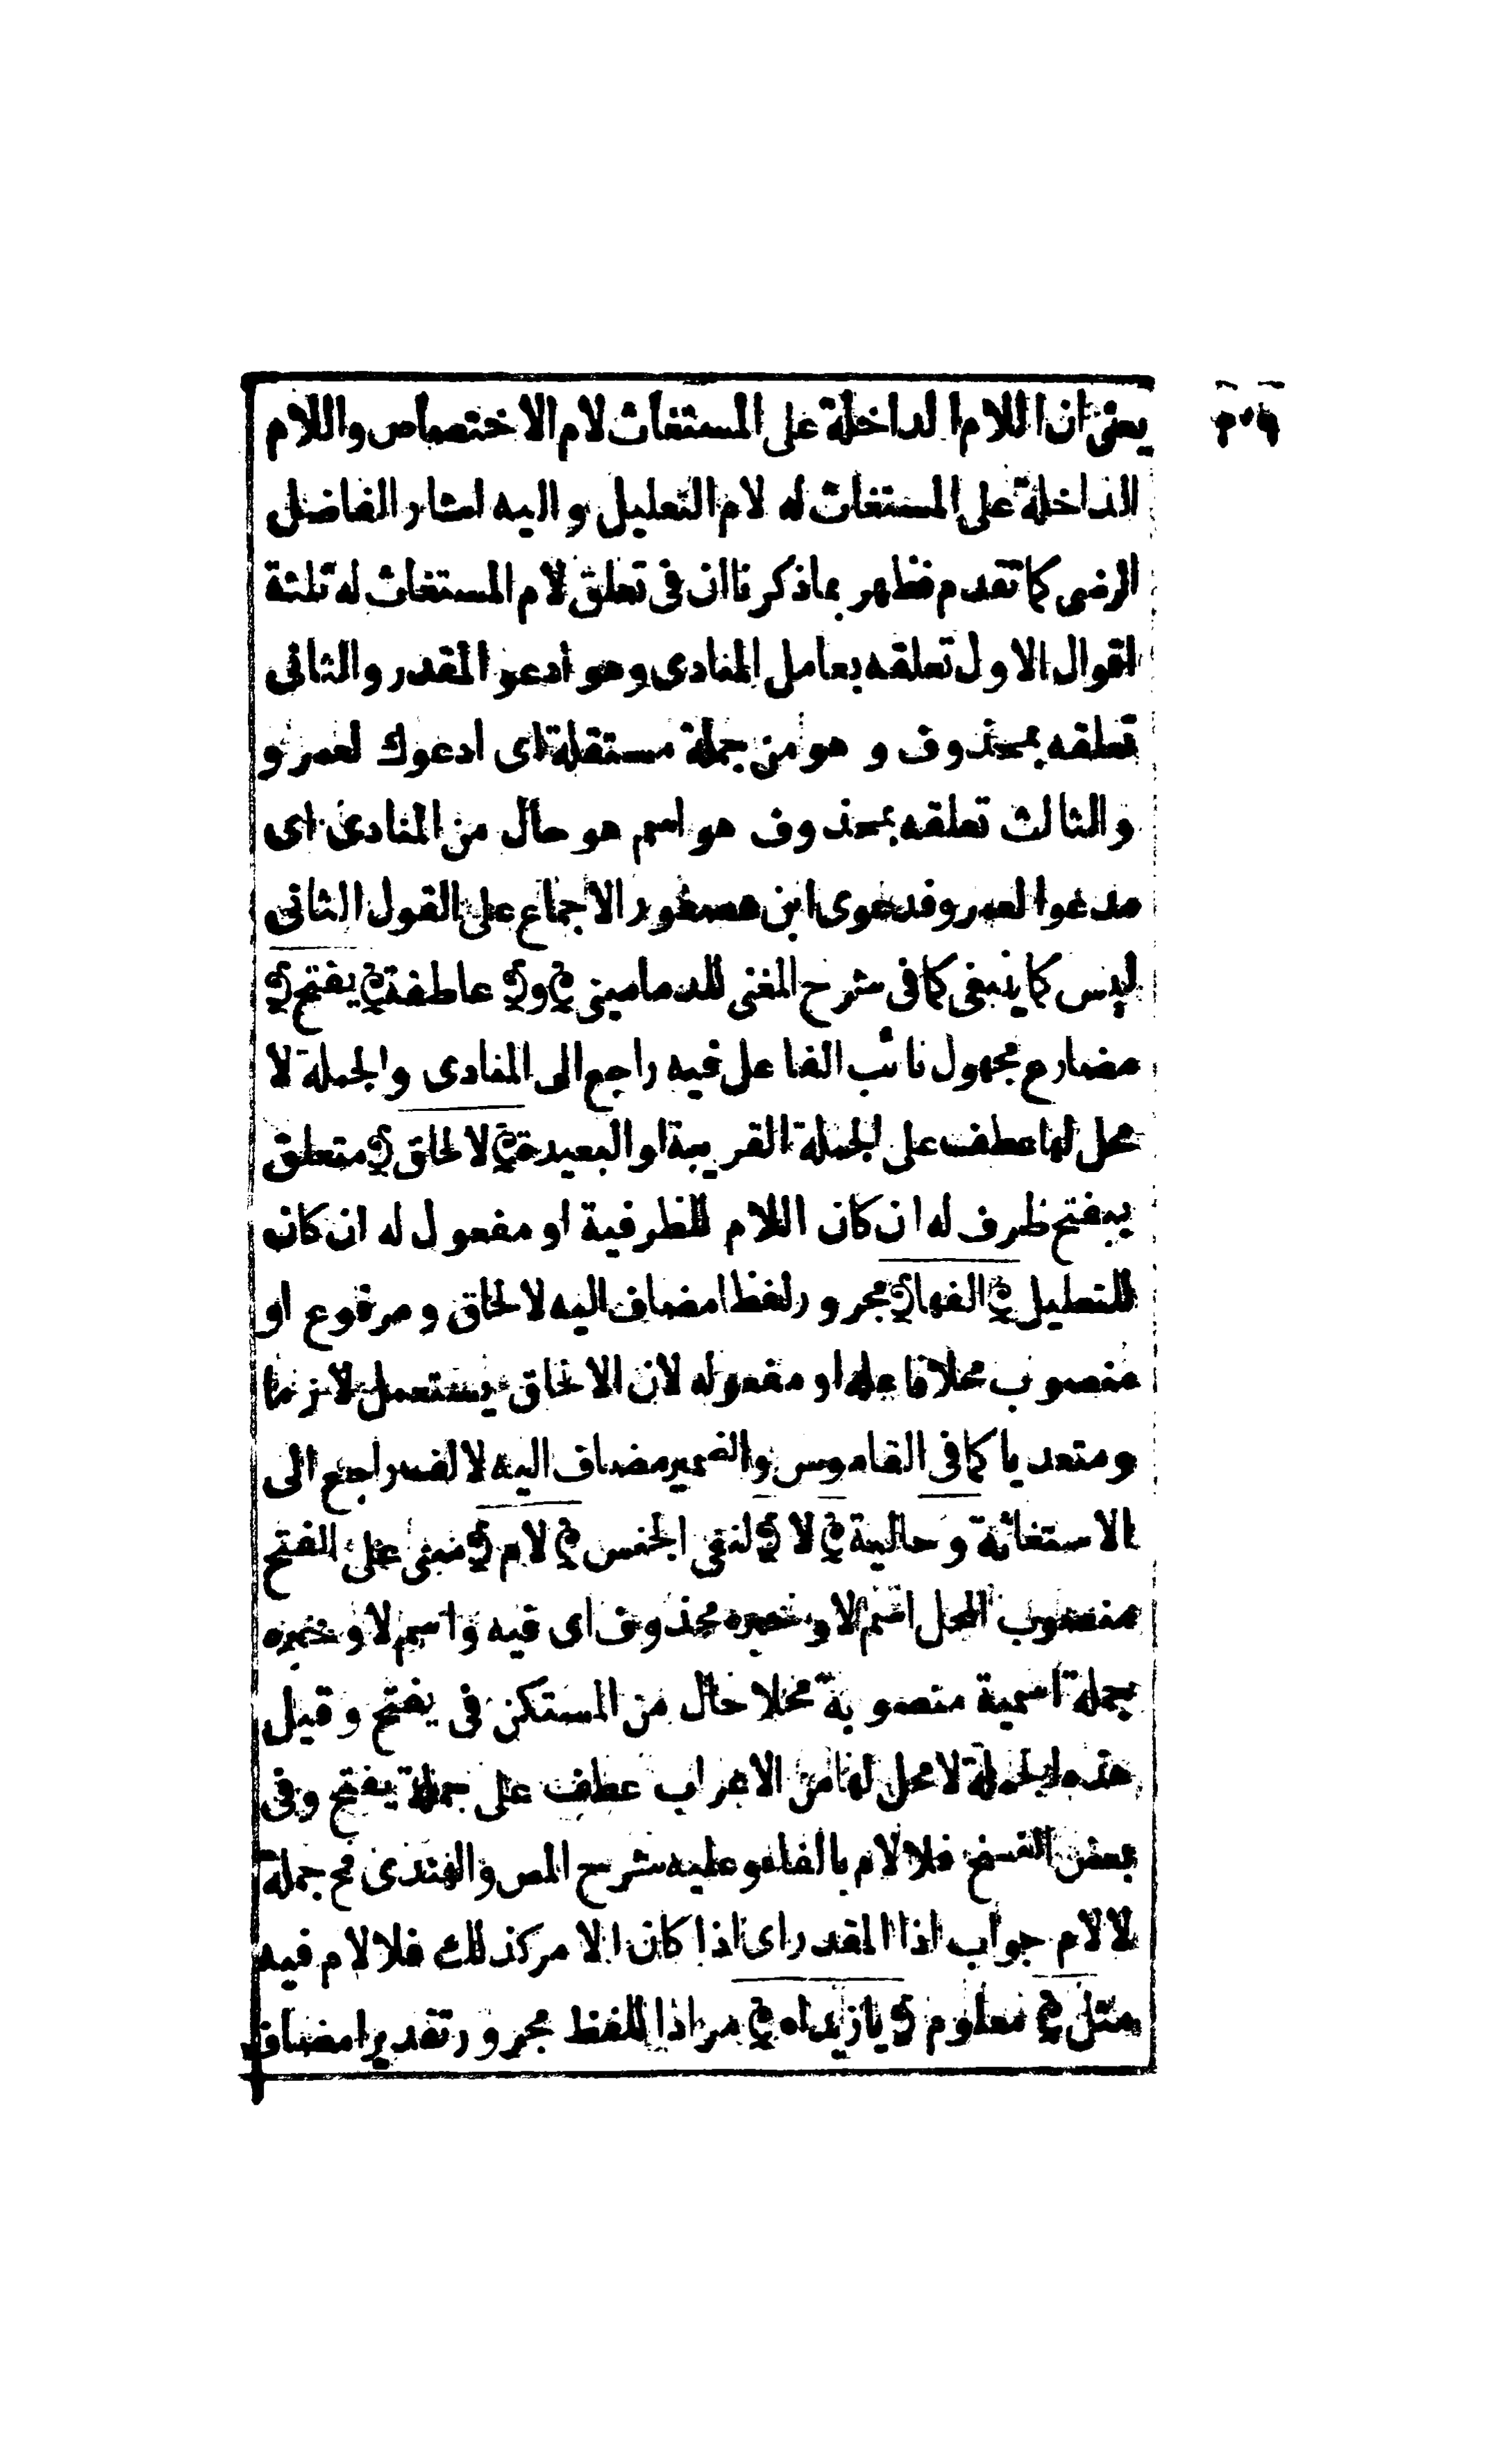 يعنى ان اللام الداخلة على المستغاث لام الاختصاص واللام
الداخلة على المستغاث له لام التعليل واليه اشار الفاضل
الرضى كما تقدم فظهر بما ذكرنا ان فى تعلق لام المستغاث له ثلثة
اقوال الاول تعلقه بعامل المنادى وهو ادعو المقدر والثانى
تعلقه بمحذوف و هو من جملة مستقلة اى ادعوك لعمرو
والثالث تعلقه بمحذوف هو اسم هو حال من المنادى اى
مدعوا لعمرو فدعوى ابن عصفور الاجماع على القول الثانى
ليس كما ينبغى كما فى شرح المغنى للدمامينى ﴿و﴾ عاطفة ﴿يفتح﴾
مضارع مجهول نائب الفاعل فيه راجع الى المنادى والجملة لا
محل لها عطف على الجملة القريبة او البعيدة ﴿لالحاق﴾ متعلق
بيفتح ظرف له ان كان اللام للظرفية او مفعول له ان كان
للتعليل ﴿الفها﴾ مجرور لفظا مضاف اليه لالحاق و مرفوع او
منصوب محلا فاعله او مفعوله لان الالحاق يستعمل لازما
ومتعديا كما فى القاموس والضمير مضاف اليه لالف راجع الى
الاستغاثة و حالية ﴿لا﴾ لنفى الجنس ﴿لام﴾ مبنى على الفتح
منصوب المحل اسم لا وخبره محذوف اى فيه واسم لا وخبره
جملة اسمية منصوبة محلا حال من المستكن فى يفتح و قيل
هذه الجملة لا محل لها من الاعراب عطف على جملة يفتح وفى
بعض النسخ فلا لام بالفاء وعليه شرح المص والهندى فح جملة
لا لام جواب اذا المقدر اى اذا كان الامر كذلك فلا لام فيه
مثل ﴿ معلوم ﴾ يا زيداه ﴿ مراد اللفظ مجرور تقديرا مضاف